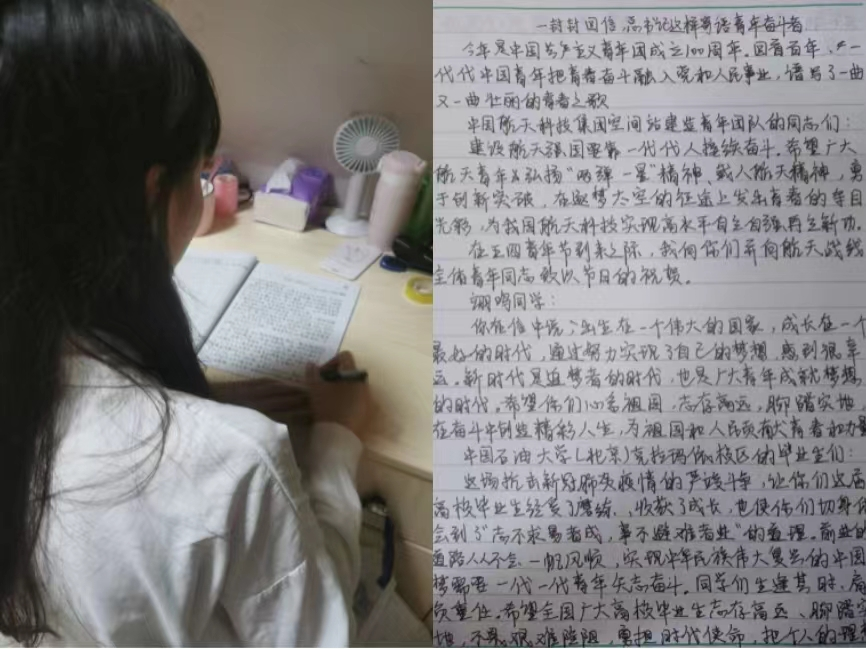 一封封回信,总书记这样寄语青年奋斗者
今年是中国共产主义青年团成立100周年。回首百年,一
代代中国青年把青春奋斗融入党和人民事业,谱写了一曲
又一曲壮丽的青春之歌
中国航天科技集团空间站建造青年团队的同志们:
建设航天强国要靠一代代人接续奋斗。希望广大
航天青年弘扬“两弹一星”精神、载人航天精神,勇
于创新突破,在逐梦太空的征途上发出青春的夺目
光彩,为我国航天科技实现高水平自立自强再立新功。
在五四青年节到来之际,我向你们并向航天战线
全体青年同志致以节日的祝贺。
翊鸣同学:
你在信中说,出生在一个伟大的国家,成长在一个
最好的时代,通过努力实现了自己的梦想,感到很幸
运。新时代是追梦者的时代,也是广大青年成就梦想
的时代。希望你们心系祖国,志存高远,脚踏实地,
在奋斗中创造精彩人生,为祖国和人民贡献青春和力量
中国石油大学(北京)克拉玛依校区的毕业生们:
这场抗击新冠肺炎疫情的严峻斗争,让你们这届
高校毕业生经受了磨练、收获了成长,也使你们切身体
会到了“志不求易者成,事不避难者进”的道理。前进的
道路从不会一帆风顺,实现中华民族伟大复兴的中国
梦需要一代一代青年矢志奋斗。同学们生逢其时、肩
负重任。希望全国广大高校毕业生志存高远、脚踏
地,不畏艰难险阻,勇担时代使命,把个人的理